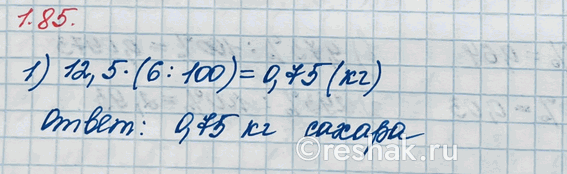 1.85.
1) 12,5·(6:100)=0,75(кг)
ответ: 0,75 кг сахара
reshak.ru